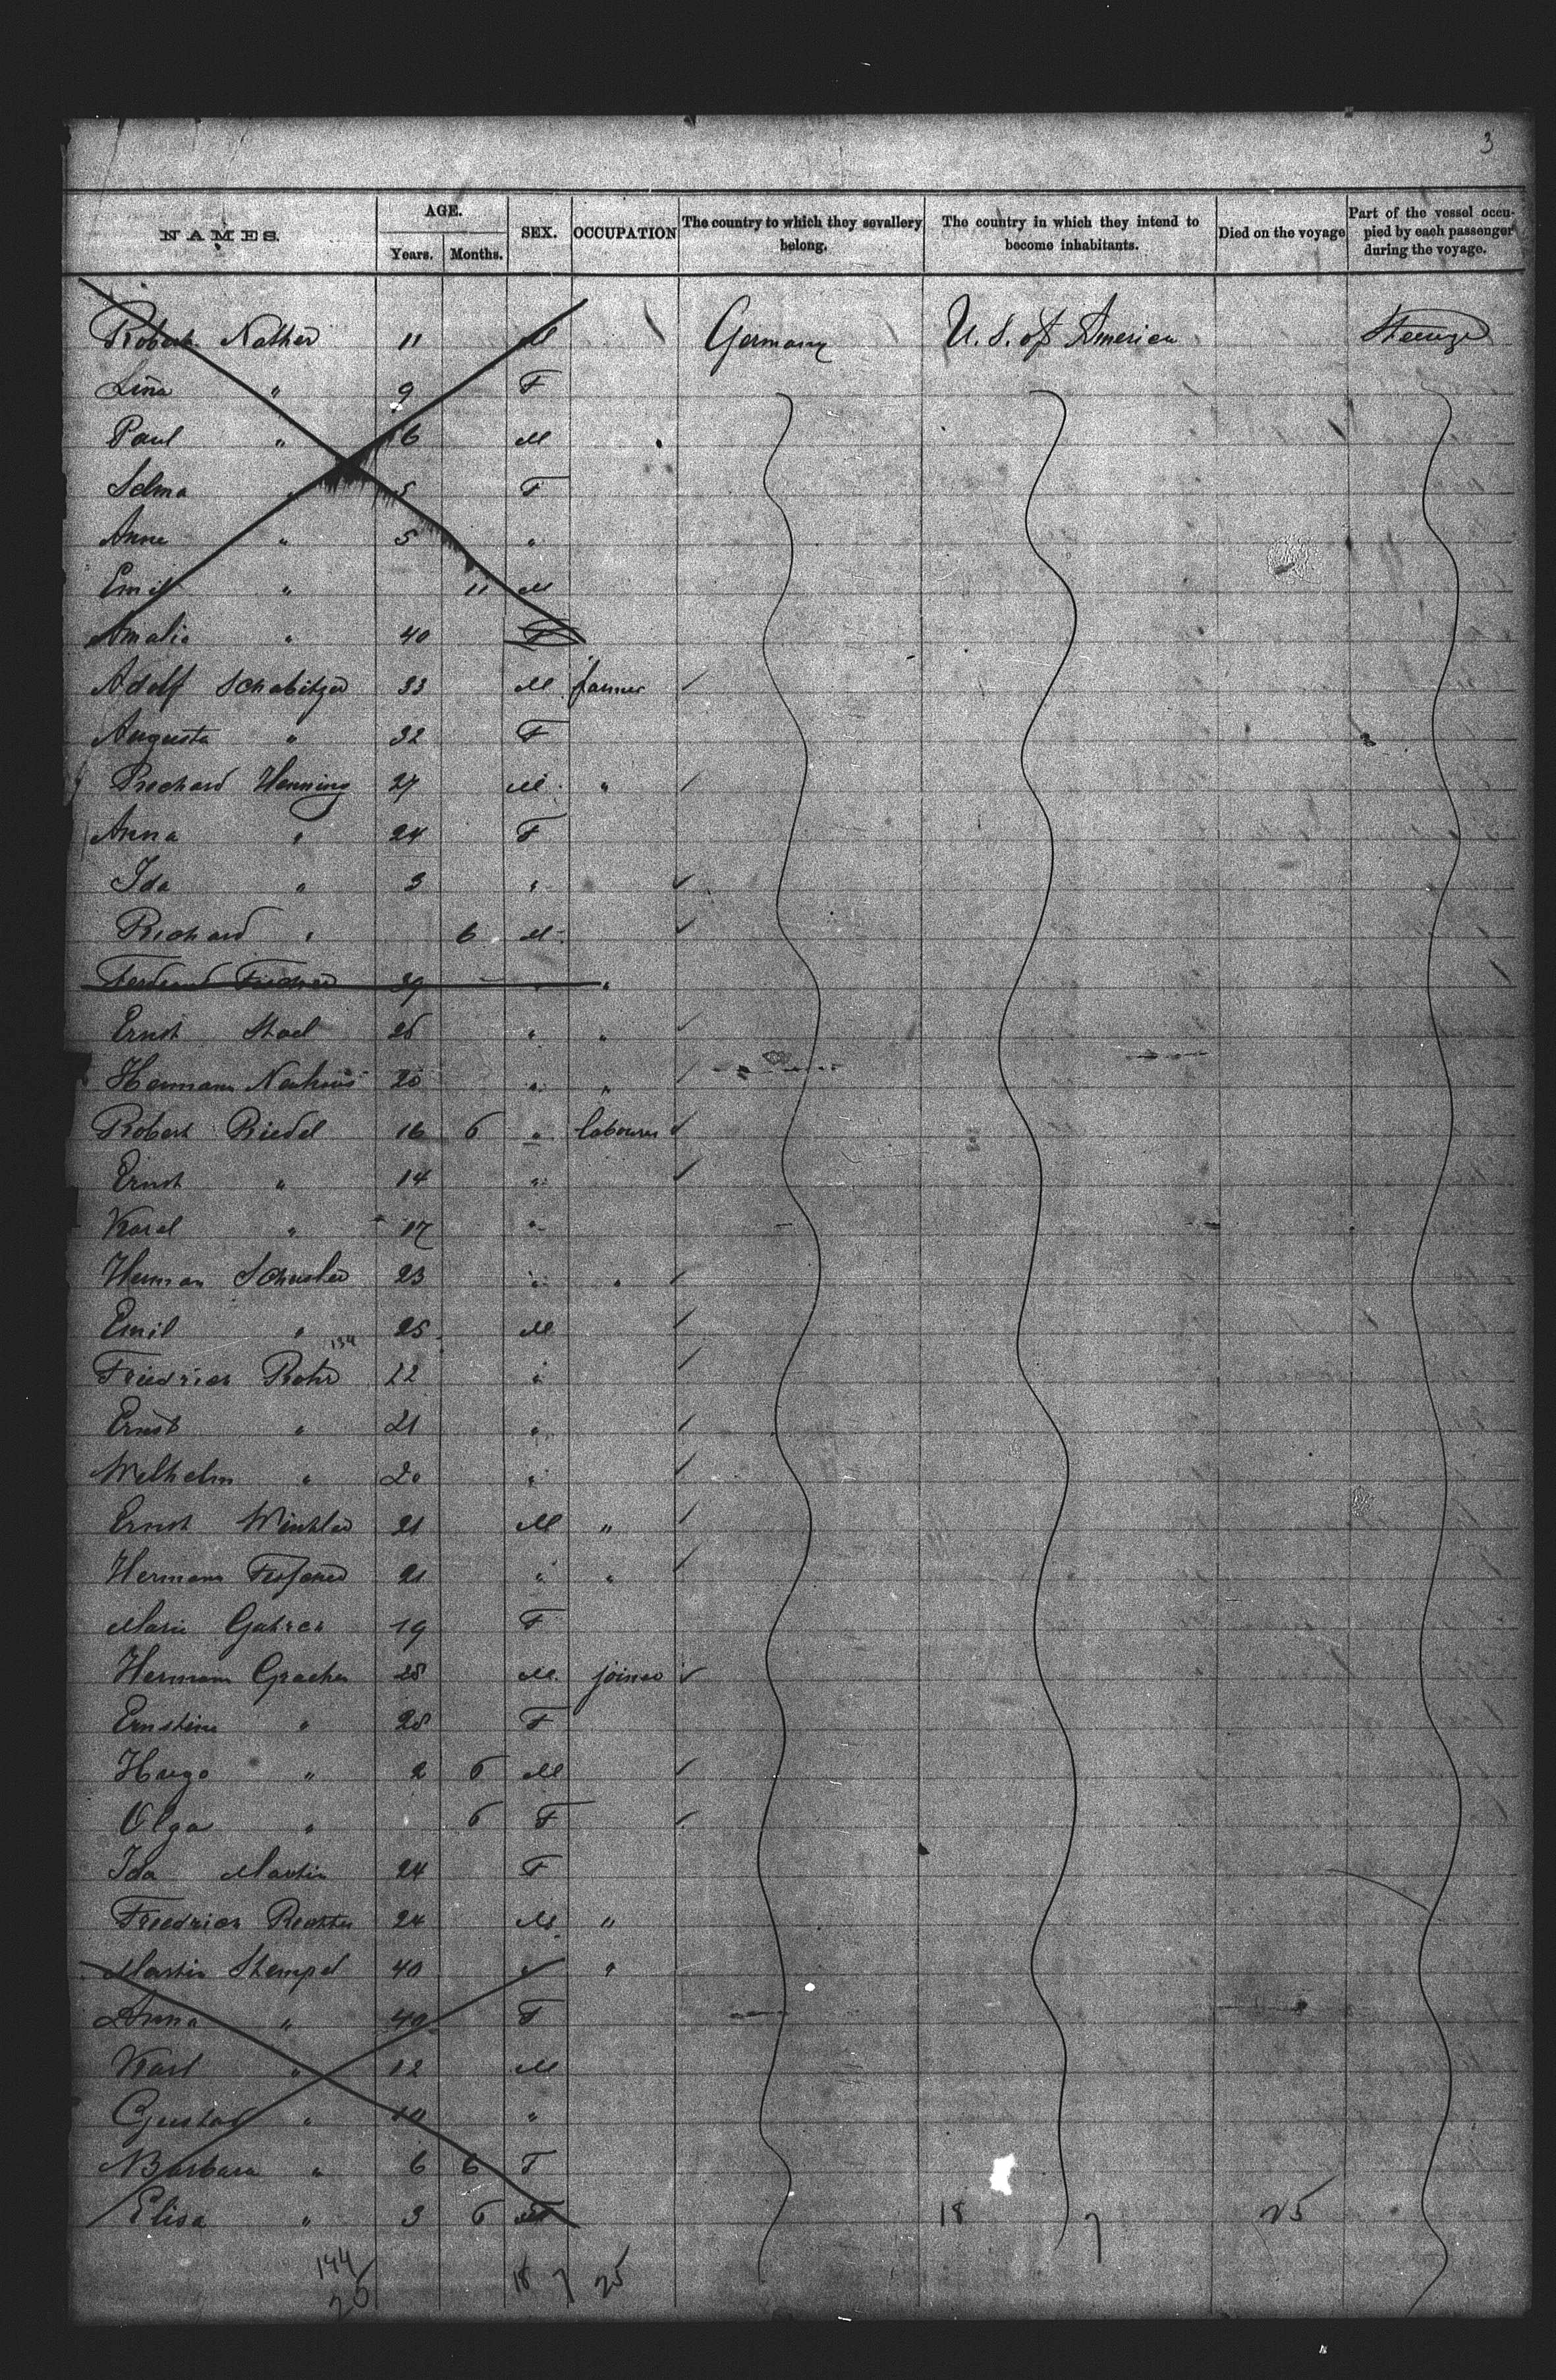 3
NAMES. AGE. Years. Months. SEX. OCCUPATION The country to which they sevallery belong. The country in which they intend to become inhabitants. Died on the voyage Part of the vessel occupied by each passenger during the voyage.
Robert Nather 11 M Germany U. S. of America Steerage
Lina " 9 F
Paul " 6 M
Selma " 5 F
Anne " 5 "
Emil " 11 M
Amalie " 40 F
Adolf Schabitzer 33 M farmer
Augusta " 32 F
Richard Henning 27 M "
Anna " 24 F
Ida " 3 "
Richard " 6 M
29 " "
Ernst 26 " "
Hermann 20 " "
Robert Riedel 16 6 " labourer
Ernst " 14 "
Karel " 17 "
Herman Schuster 23 " "
Emil " 25 M
Friedrich Rohr 22 "
Ernst " 21 "
Wilhelm " 20 "
Ernst Winkler 21 M "
Hermann 21 " "
Marie 19 F
Hermann 28 M joiner
Ernstine " 28 F
Hugo " 2 6 M
Olga " 6 F
Ida Martin 24 F
Friedrich Richter 24 M "
Martin Stempel 40 "
Anna " 40 F
Karl " 12 M
Gustav " 10 "
Barbara " 6 6 F
Elisa " 3 6 18 7 25
144 18 7 25